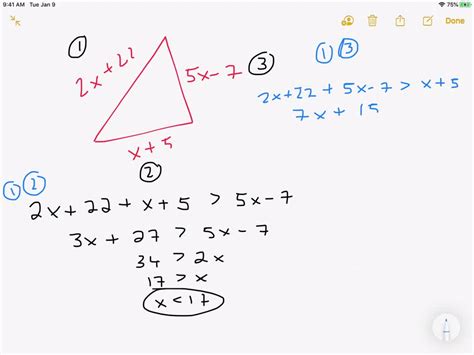 9:41 AM Tue Jan 9
75%
Done
①
2x+22
5x-7
③
x+5
②
① ③
2x+22 + 5x-7 > x+5
7x + 15
① ②
2x+22 + x+5 > 5x-7
3x + 27 > 5x-7
34 > 2x
17 > x
x < 17